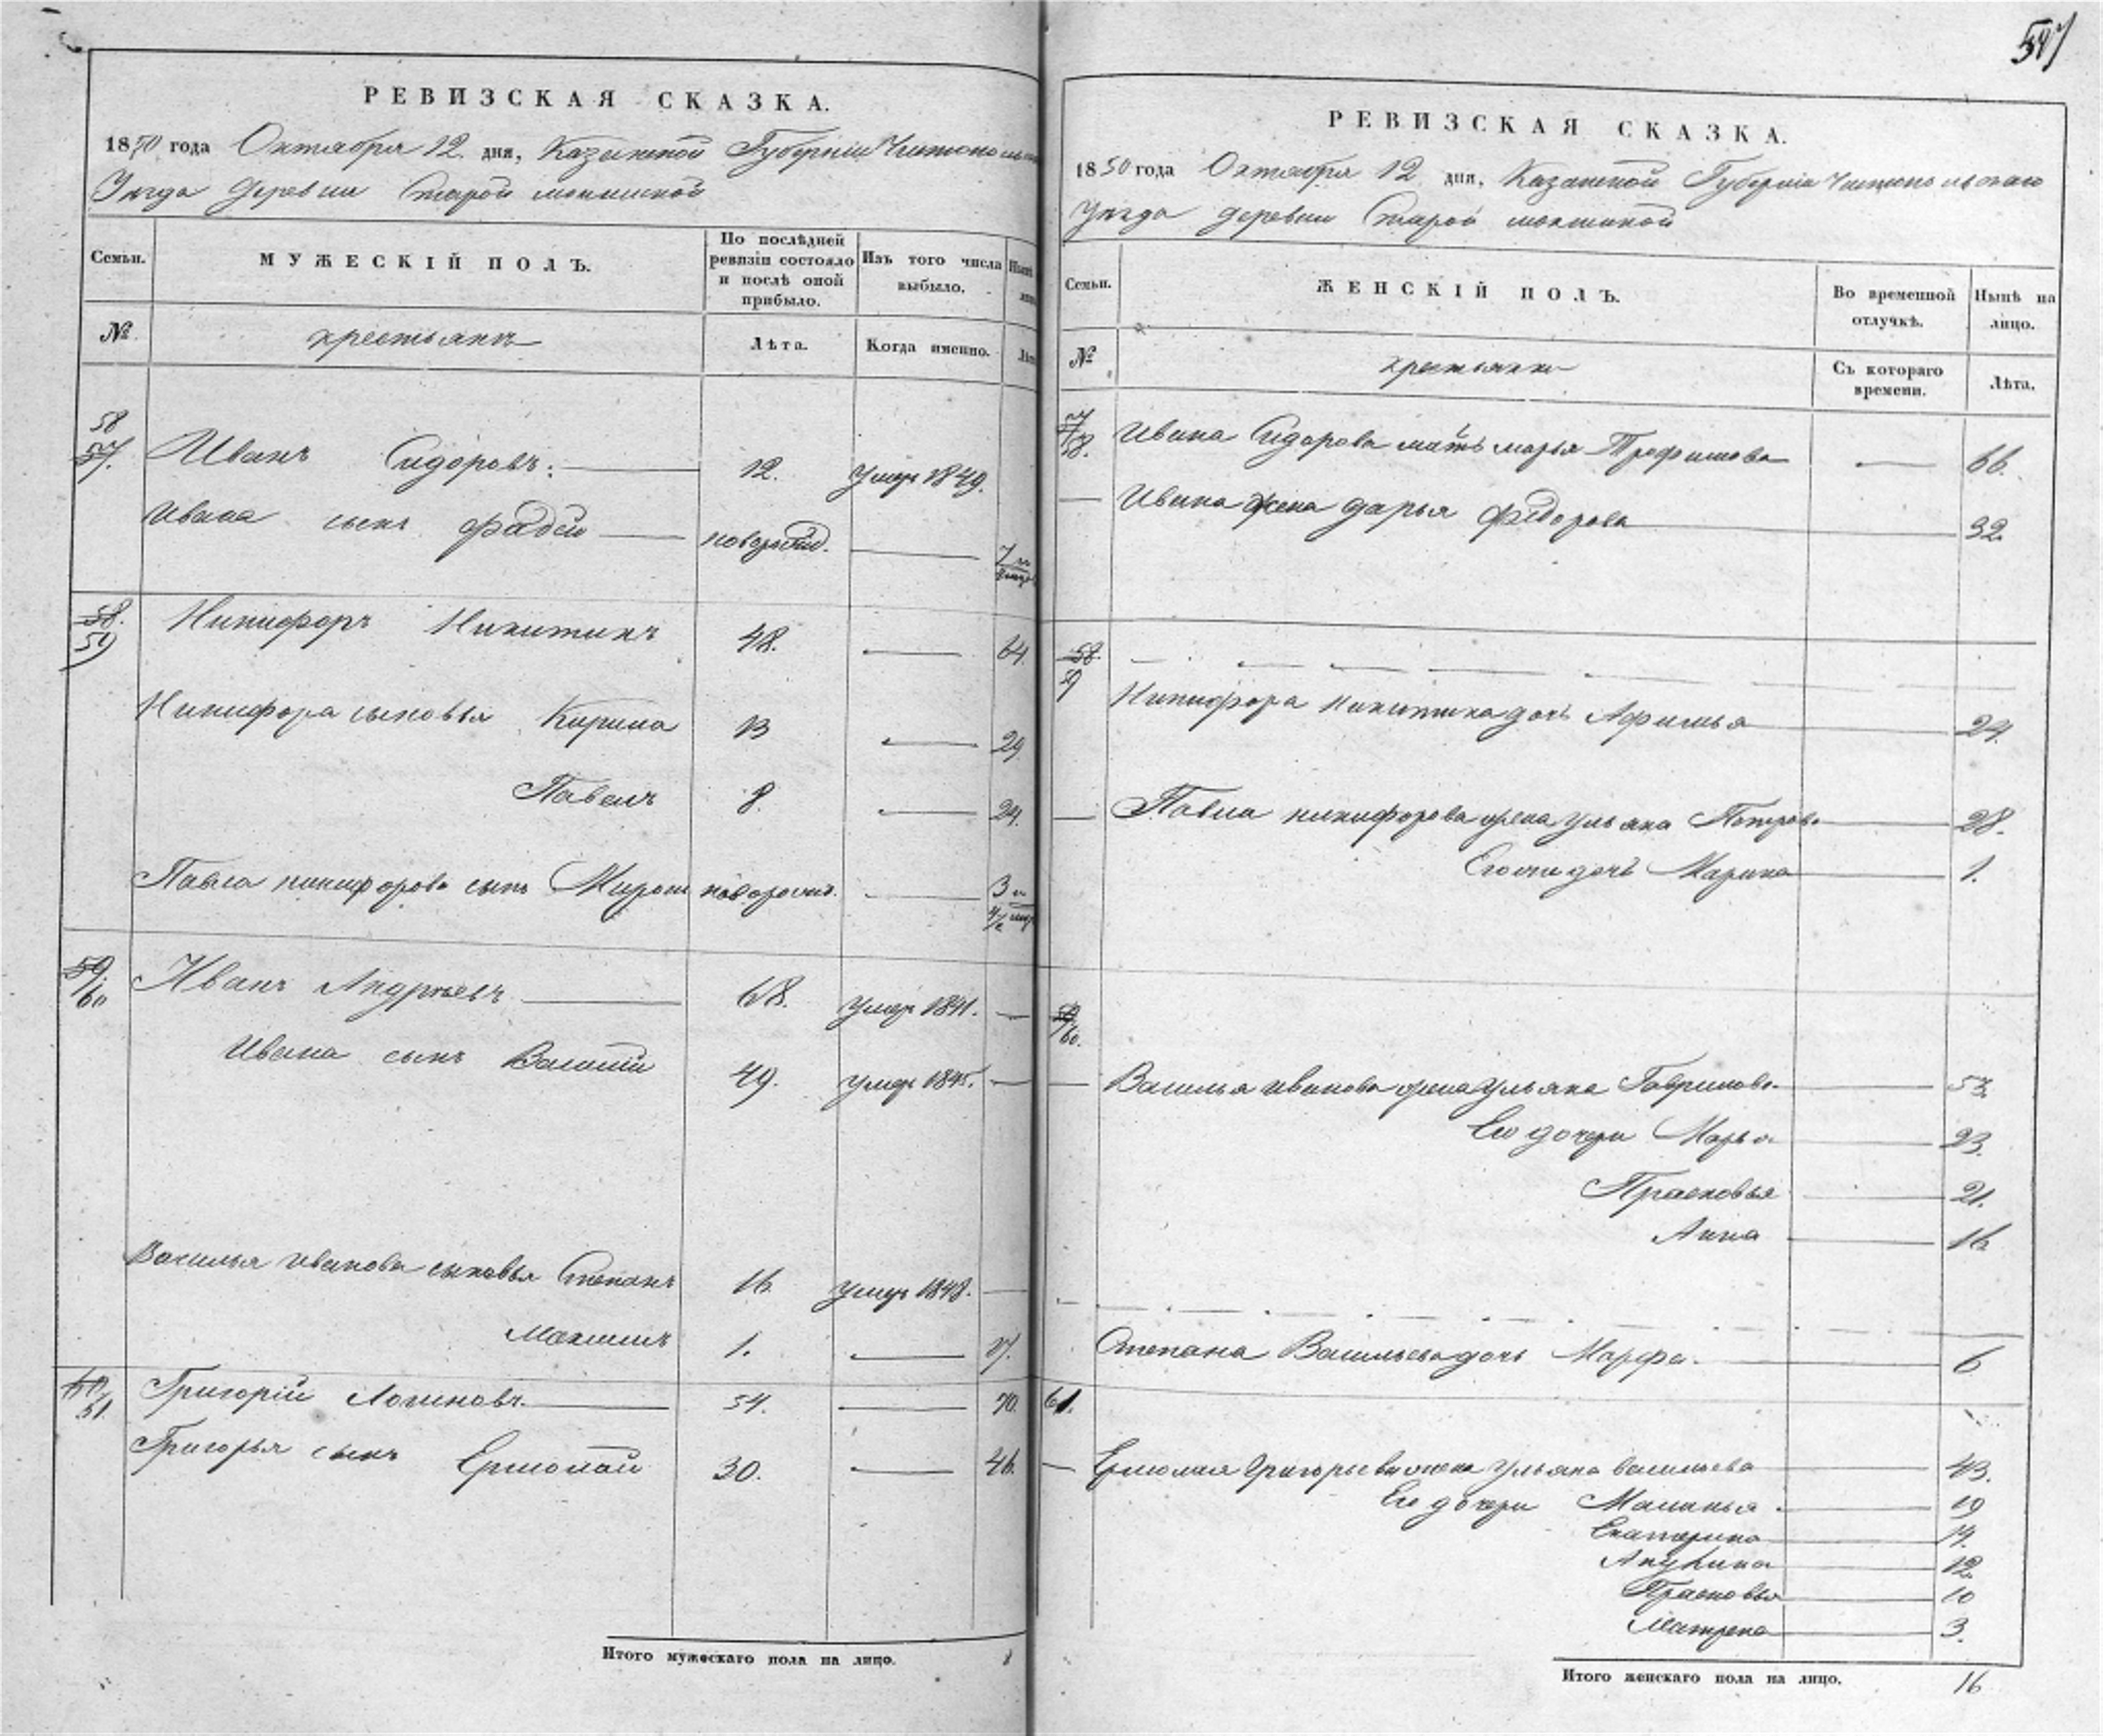 547
РЕВИЗСКАЯ СКАЗКА.
1850 года Октября 12 дня, Казанской Губерніи Чистопольс
Уѣзда деревни Старой
Семьи.
МУЖЕСКІЙ ПОЛЪ.
По послѣдней ревизіи состояло и послѣ оной прибыло.
Изъ того числа выбыло.
№
крестьянъ
Лѣта.
Когда именно.
58
57. Иванъ Сидоровъ: 12. умеръ 1849.
Ивана сынъ Фадѣй новорожд. 7
58. Никифоръ Никитинъ 48. 64.
59
Никифора сыновья Кирила 13 29
Павелъ 8. 24.
Павла никифорова сынъ Миронъ новорожд. 3 и
59. Иванъ Андрѣевъ 68. умеръ 1841.
60
Ивана сынъ Василій 49. умеръ 1845.
Василья иванова сыновья Степанъ 16 умеръ 1848.
Максимъ 1. 17.
60 Григорій Логиновъ. 54. 70.
61.
Григорья сынъ Ермолай 30. 46.
Итого мужескаго пола на лицо. 8
РЕВИЗСКАЯ СКАЗКА.
1850 года Октября 12 дня, Казанской Губерніи Чистопольскаго
Уѣзда деревни Старой
Семьи.
ЖЕНСКІЙ ПОЛЪ.
Во временной отлучкѣ.
Нынѣ на лицо.
№
крестьянки
Съ котораго времени.
Лѣта.
57
58. Ивана Сидорова мать марья Трофимова 66.
Ивана жена дарья Фѣдорова 32.
58.
59
Никифора никитина дочь Афимья 24.
Павла никифорова жена ульяна Петрова 28.
Его же дочь Марина 1.
59
60.
Василья иванова жена ульяна Гаврилова 53.
Его дочери Марья 23.
Прасковья 21.
Анна 16
Степана Васильева дочь Марфа. 6
61.
Ермолая Григорьева жена ульяна васильева 43.
Его дочери Маланья 19
Екатерина 14.
Акулина 12
Прасковья 10
Матрена 3.
Итого женскаго пола на лицо. 16